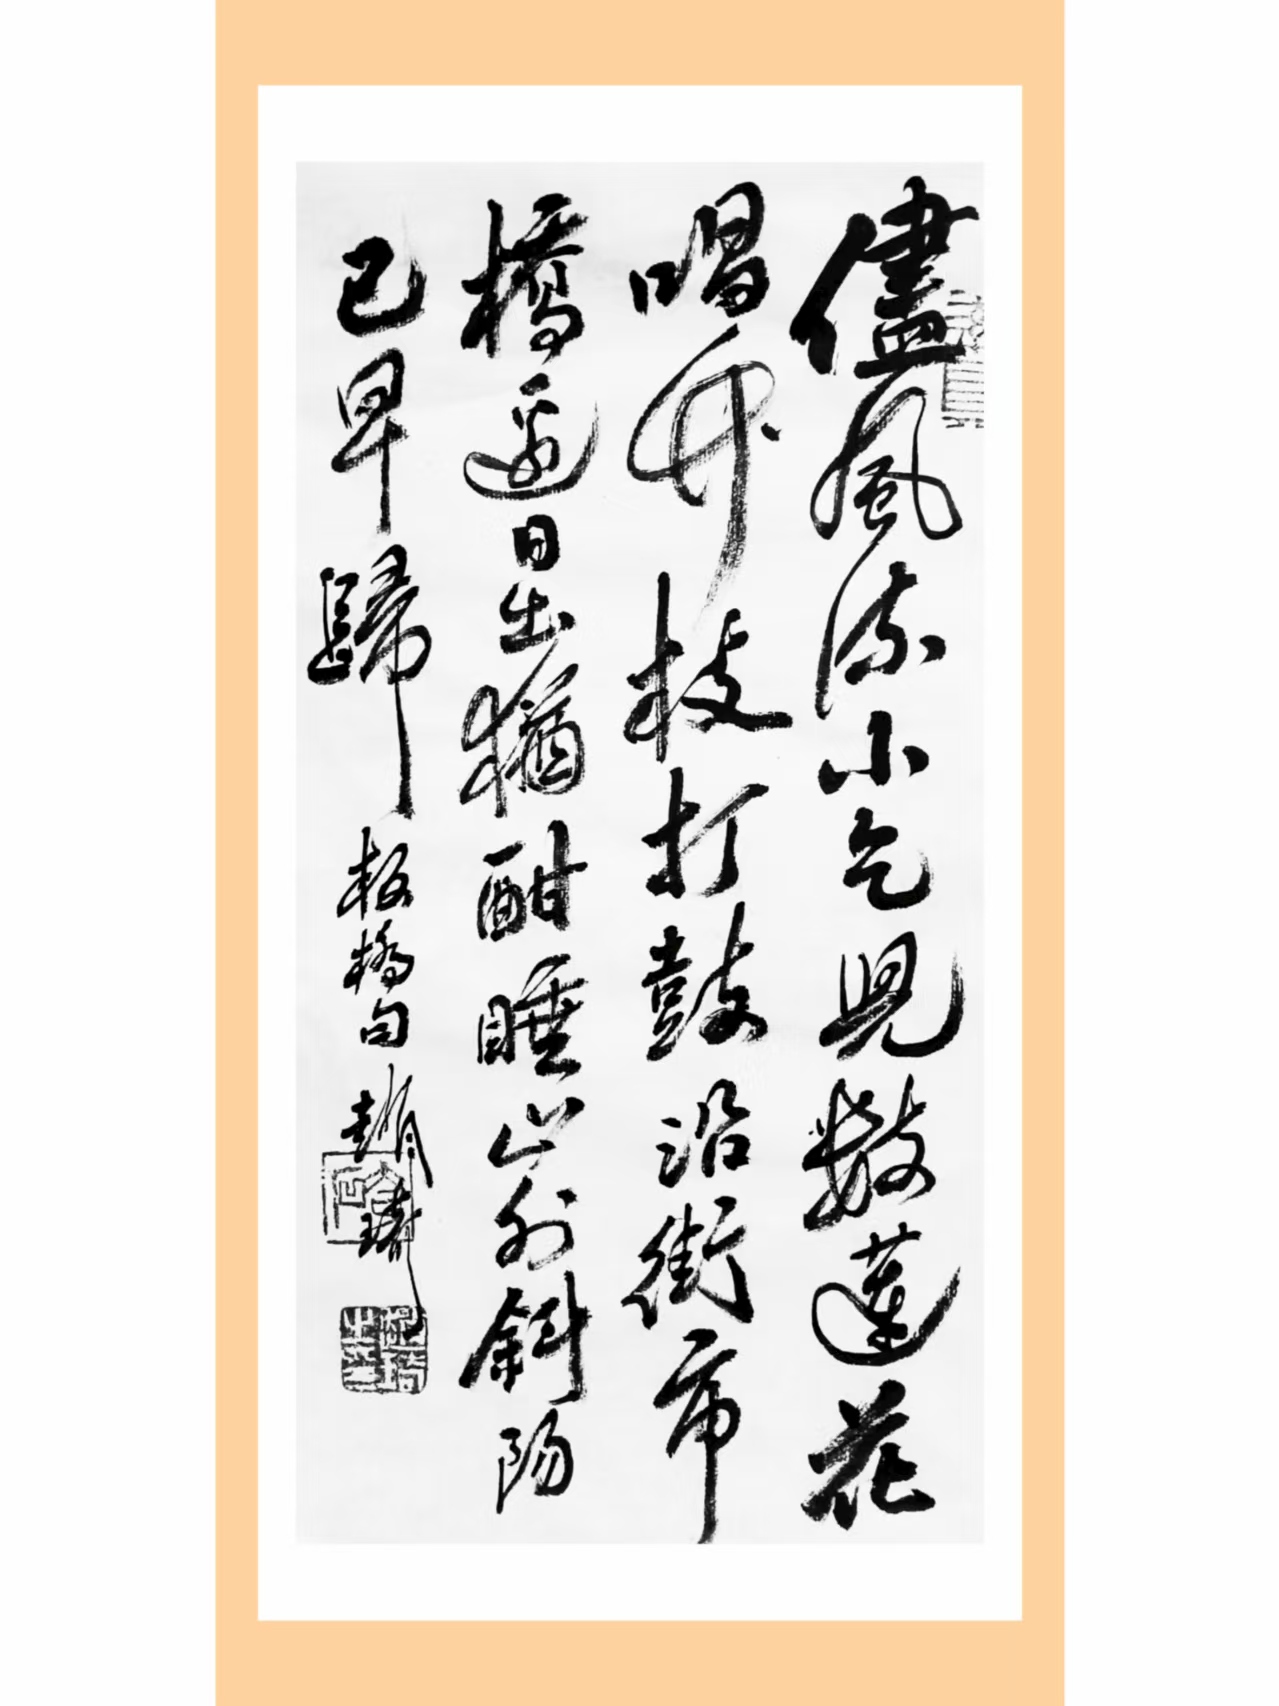 儘風流小乞兒數蓮花
唱竹枝打鼓沿街市
橋邊日出猶酣睡山外斜陽
已早歸
板橋句趙